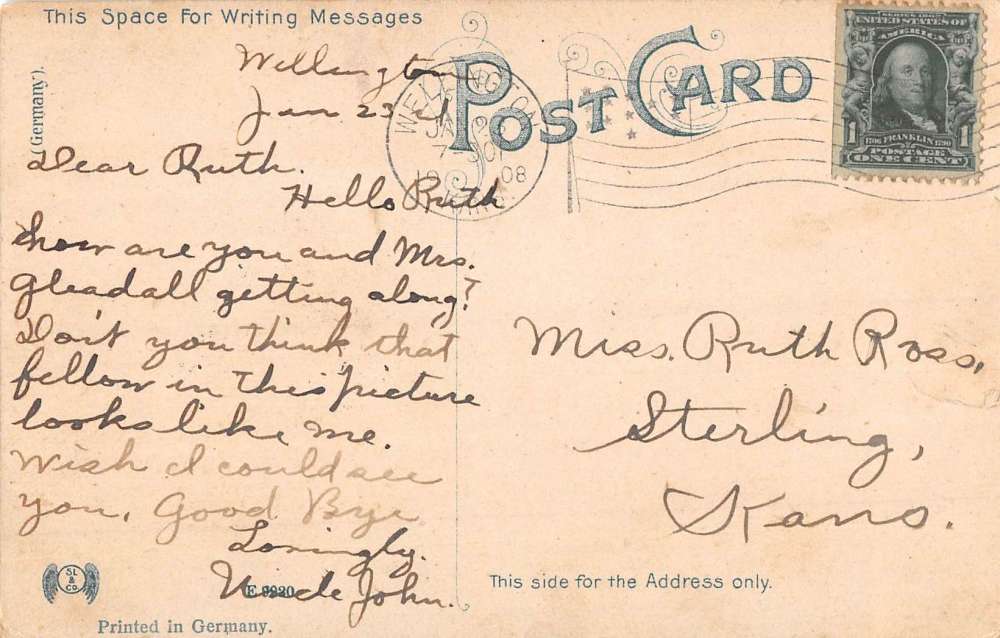 This Space For Writing Messages
POST CARD
(Germany).
SERIES 1902
UNITED STATES OF AMERICA
1 1706 FRANKLIN 1790 1
POSTAGE
ONE CENT
WELLINGTON
JAN 2
7-30
1908
Wellington
Jan 23
Dear Ruth.
Hello Ruth
how are you and Mrs.
Gleadall getting along?
Don't you think that
fellow in this picture
looks like me.
Wish I could see
you. Good Bye
Lovingly.
Uncle John.
Miss. Ruth Ross,
Sterling,
Kans.
SL & CO.
E 9920
Printed in Germany.
This side for the Address only.